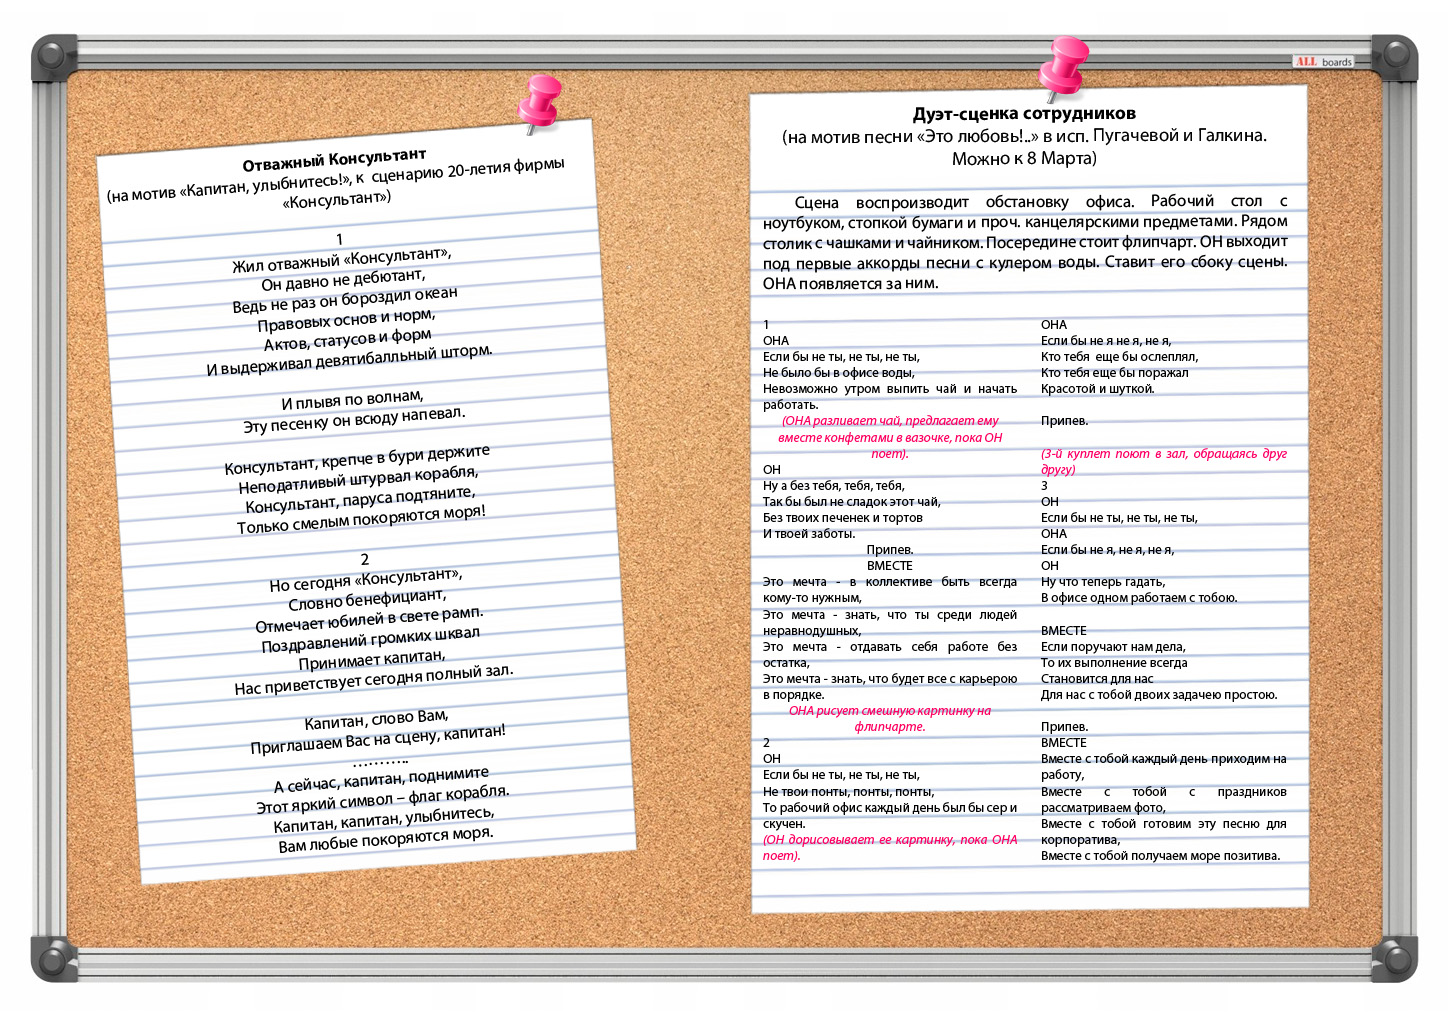 ALL boards
Отважный Консультант
(на мотив «Капитан, улыбнитесь!», к сценарию 20-летия фирмы
«Консультант»)
1
Жил отважный «Консультант»,
Он давно не дебютант,
Ведь не раз он бороздил океан
Правовых основ и норм,
Актов, статусов и форм
И выдерживал девятибалльный шторм.
И плывя по волнам,
Эту песенку он всюду напевал.
Консультант, крепче в бури держите
Неподатливый штурвал корабля,
Консультант, паруса подтяните,
Только смелым покоряются моря!
2
Но сегодня «Консультант»,
Словно бенефициант,
Отмечает юбилей в свете рамп.
Поздравлений громких шквал
Принимает капитан,
Нас приветствует сегодня полный зал.
Капитан, слово Вам,
Приглашаем Вас на сцену, капитан!
………..
А сейчас, капитан, поднимите
Этот яркий символ – флаг корабля.
Капитан, капитан, улыбнитесь,
Вам любые покоряются моря.
Дуэт-сценка сотрудников
(на мотив песни «Это любовь!..» в исп. Пугачевой и Галкина.
Можно к 8 Марта)
Сцена воспроизводит обстановку офиса. Рабочий стол с
ноутбуком, стопкой бумаги и проч. канцелярскими предметами. Рядом
столик с чашками и чайником. Посередине стоит флипчарт. ОН выходит
под первые аккорды песни с кулером воды. Ставит его сбоку сцены.
ОНА появляется за ним.
1
ОНА
Если бы не ты, не ты, не ты,
Не было бы в офисе воды,
Невозможно утром выпить чай и начать
работать.
(ОНА разливает чай, предлагает ему
вместе конфетами в вазочке, пока ОН
поет).
ОН
Ну а без тебя, тебя, тебя,
Так бы был не сладок этот чай,
Без твоих печенек и тортов
И твоей заботы.
Припев.
ВМЕСТЕ
Это мечта - в коллективе быть всегда
кому-то нужным,
Это мечта - знать, что ты среди людей
неравнодушных,
Это мечта - отдавать себя работе без
остатка,
Это мечта - знать, что будет все с карьерою
в порядке.
ОНА рисует смешную картинку на
флипчарте.
2
ОН
Если бы не ты, не ты, не ты,
Не твои понты, понты, понты,
То рабочий офис каждый день был бы сер и
скучен.
(ОН дорисовывает ее картинку, пока ОНА
поет).
ОНА
Если бы не я не я, не я,
Кто тебя еще бы ослеплял,
Кто тебя еще бы поражал
Красотой и шуткой.
Припев.
(3-й куплет поют в зал, обращаясь друг
другу)
3
ОН
Если бы не ты, не ты, не ты,
ОНА
Если бы не я, не я, не я,
ОН
Ну что теперь гадать,
В офисе одном работаем с тобою.
ВМЕСТЕ
Если поручают нам дела,
То их выполнение всегда
Становится для нас
Для нас с тобой двоих задачею простою.
Припев.
ВМЕСТЕ
Вместе с тобой каждый день приходим на
работу,
Вместе с тобой с праздников
рассматриваем фото,
Вместе с тобой готовим эту песню для
корпоратива,
Вместе с тобой получаем море позитива.